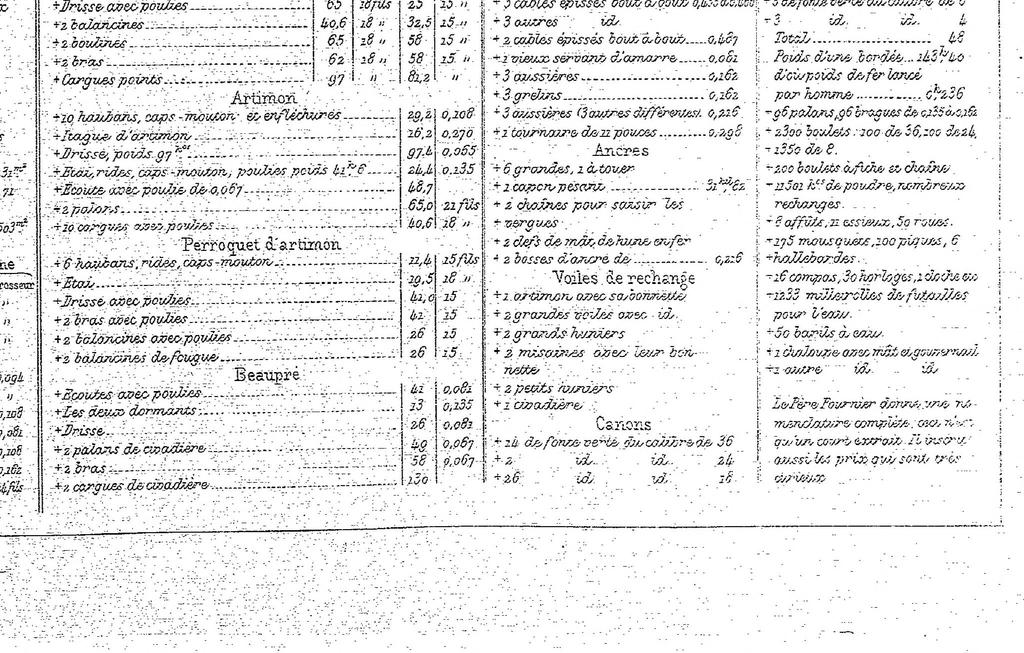 31 m²
71
503 m²
ne
rosseur
"
"
0,094
"
0,108
0,081
0,108
0,162
4 fils
+Drisse avec poulies 65 18 fils 25 15 "
+2 balancines 40,6 18 " 32,5 15 "
+2 boulines 65 18 " 58 15 "
+2 bras 62 18 " 58 15 "
+Cargues points 97 " 81,2 "
Artimon
+10 haubans, caps-mouton et enfléchures 29,2 0,108
+Itague d'artimon 16,2 0,270
+Drisse, poids 97 kos 97,4 0,065
+Etai, rides, caps-mouton, poulies poids 41 k 6 24,4 0,135
+Ecoute avec poulie de 0,067 48,7
+2 palans 65,0 21 fils
+10 cargues avec poulies 40,6 18 "
Perroquet d'artimon
+6 haubans, rides, caps-mouton 11,4 15 fils
+Etai 19,5 18 "
+Drisse avec poulies 41,0 15
+2 bras avec poulies 41 15
+2 balancines avec poulies 26 15
+2 balancines de fougue 26 15
Beaupré
+Ecoutes avec poulies 41 0,081
+Les deux dormants 13 0,135
+Drisse 26 0,081
+2 palans de civadière 49 0,067
+2 bras 58 0,067
+2 cargues de civadière 130
+3 cables épissés bout à bout
+3 autres id.
+2 cables épissés bout à bout 0,487
+1 vieux servant d'amarre 0,081
+3 aussières 0,162
+3 grelins 0,162
+3 aussières (3 autres différentes) 0,216
+1 tournaire de 11 pouces 0,298
Ancres
+6 grandes, 1 à touer
+1 capon pesant 31 kil 82
+2 chaînes pour saisir les
+vergues
+2 clefs de mât, de hune en fer
+2 bosses d'ancre de 0,216
Voiles de rechange
+1 artimon avec sa bonnette
+2 grandes voiles avec id.
+2 grands huniers
+2 misaines avec leur bonnette
nette
+2 petits huniers
+1 civadière
Canons
+14 de fonte verte du calibre de 36
+2 id. id. 24
+26 id. id. 18
+3 de fonte verte du calibre de 8
+3 id. id. 4
Total 48
Poids d'une bordée 143 k 40
d'où poids de fer lancé
par homme 0 k 236
+96 palans, 96 bragues de 0,135 à 0,162
+2300 boulets: 100 de 36, 100 de 24,
+1350 de 8.
+200 boulets à fiche et chaîne
+11501 kos de poudre, nombreux
rechanges.
+8 affûts, 11 essieux, 50 roues.
+195 mousquets, 100 piques, 6
+hallebardes.
+16 compas, 30 horloges, 1 cloche etc
+1233 milleroles de futailles
pour l'eau.
+50 barils à eau.
+1 chaloupe avec mât et gouvernail
+1 autre id. id.
Le Père Fournier donne une no-
menclature complète, ceci n'est
qu'un court extrait. Il inscrit
aussi les prix qui sont très
curieux